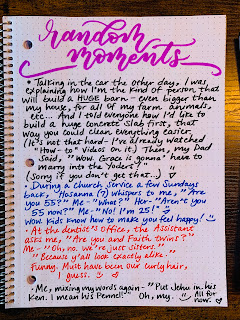 random
moments
• Talking in the car the other day, I was
explaining how I'm the kind of person that
will build a HUGE barn - even bigger than
my house, for all of my farm animals,
etc... And I told everyone how I'd like to
build a huge concrete slab first, that
way you could clean everything easier.
(It's not that hard - I've already watched
"How-to" Videos on it) Then, my Dad
said, "Wow. Grace is gonna' have to
marry into the Yoders!"
(Sorry if you don't get that...)
• During a Church Service a few Sundays
back, Hosanna () whispers to me, "Are
you 55?" Me - "What?" Her - "Aren't you
55 now?" Me - "No! I'm 25!"
Wow. Kids know how to make you feel happy!
• At the dentist's Office, the Assistant
asks me, "Are you and Faith twins?"
Me - "Oh, no. We're just sisters."
"Because y'all look exactly alike."
Funny. Must have been our curly hair,
I guess.
• Me, mixing my words again - "Put Jehu in his
Ken. I mean his Pennel!" Oh, my.
All for
now.